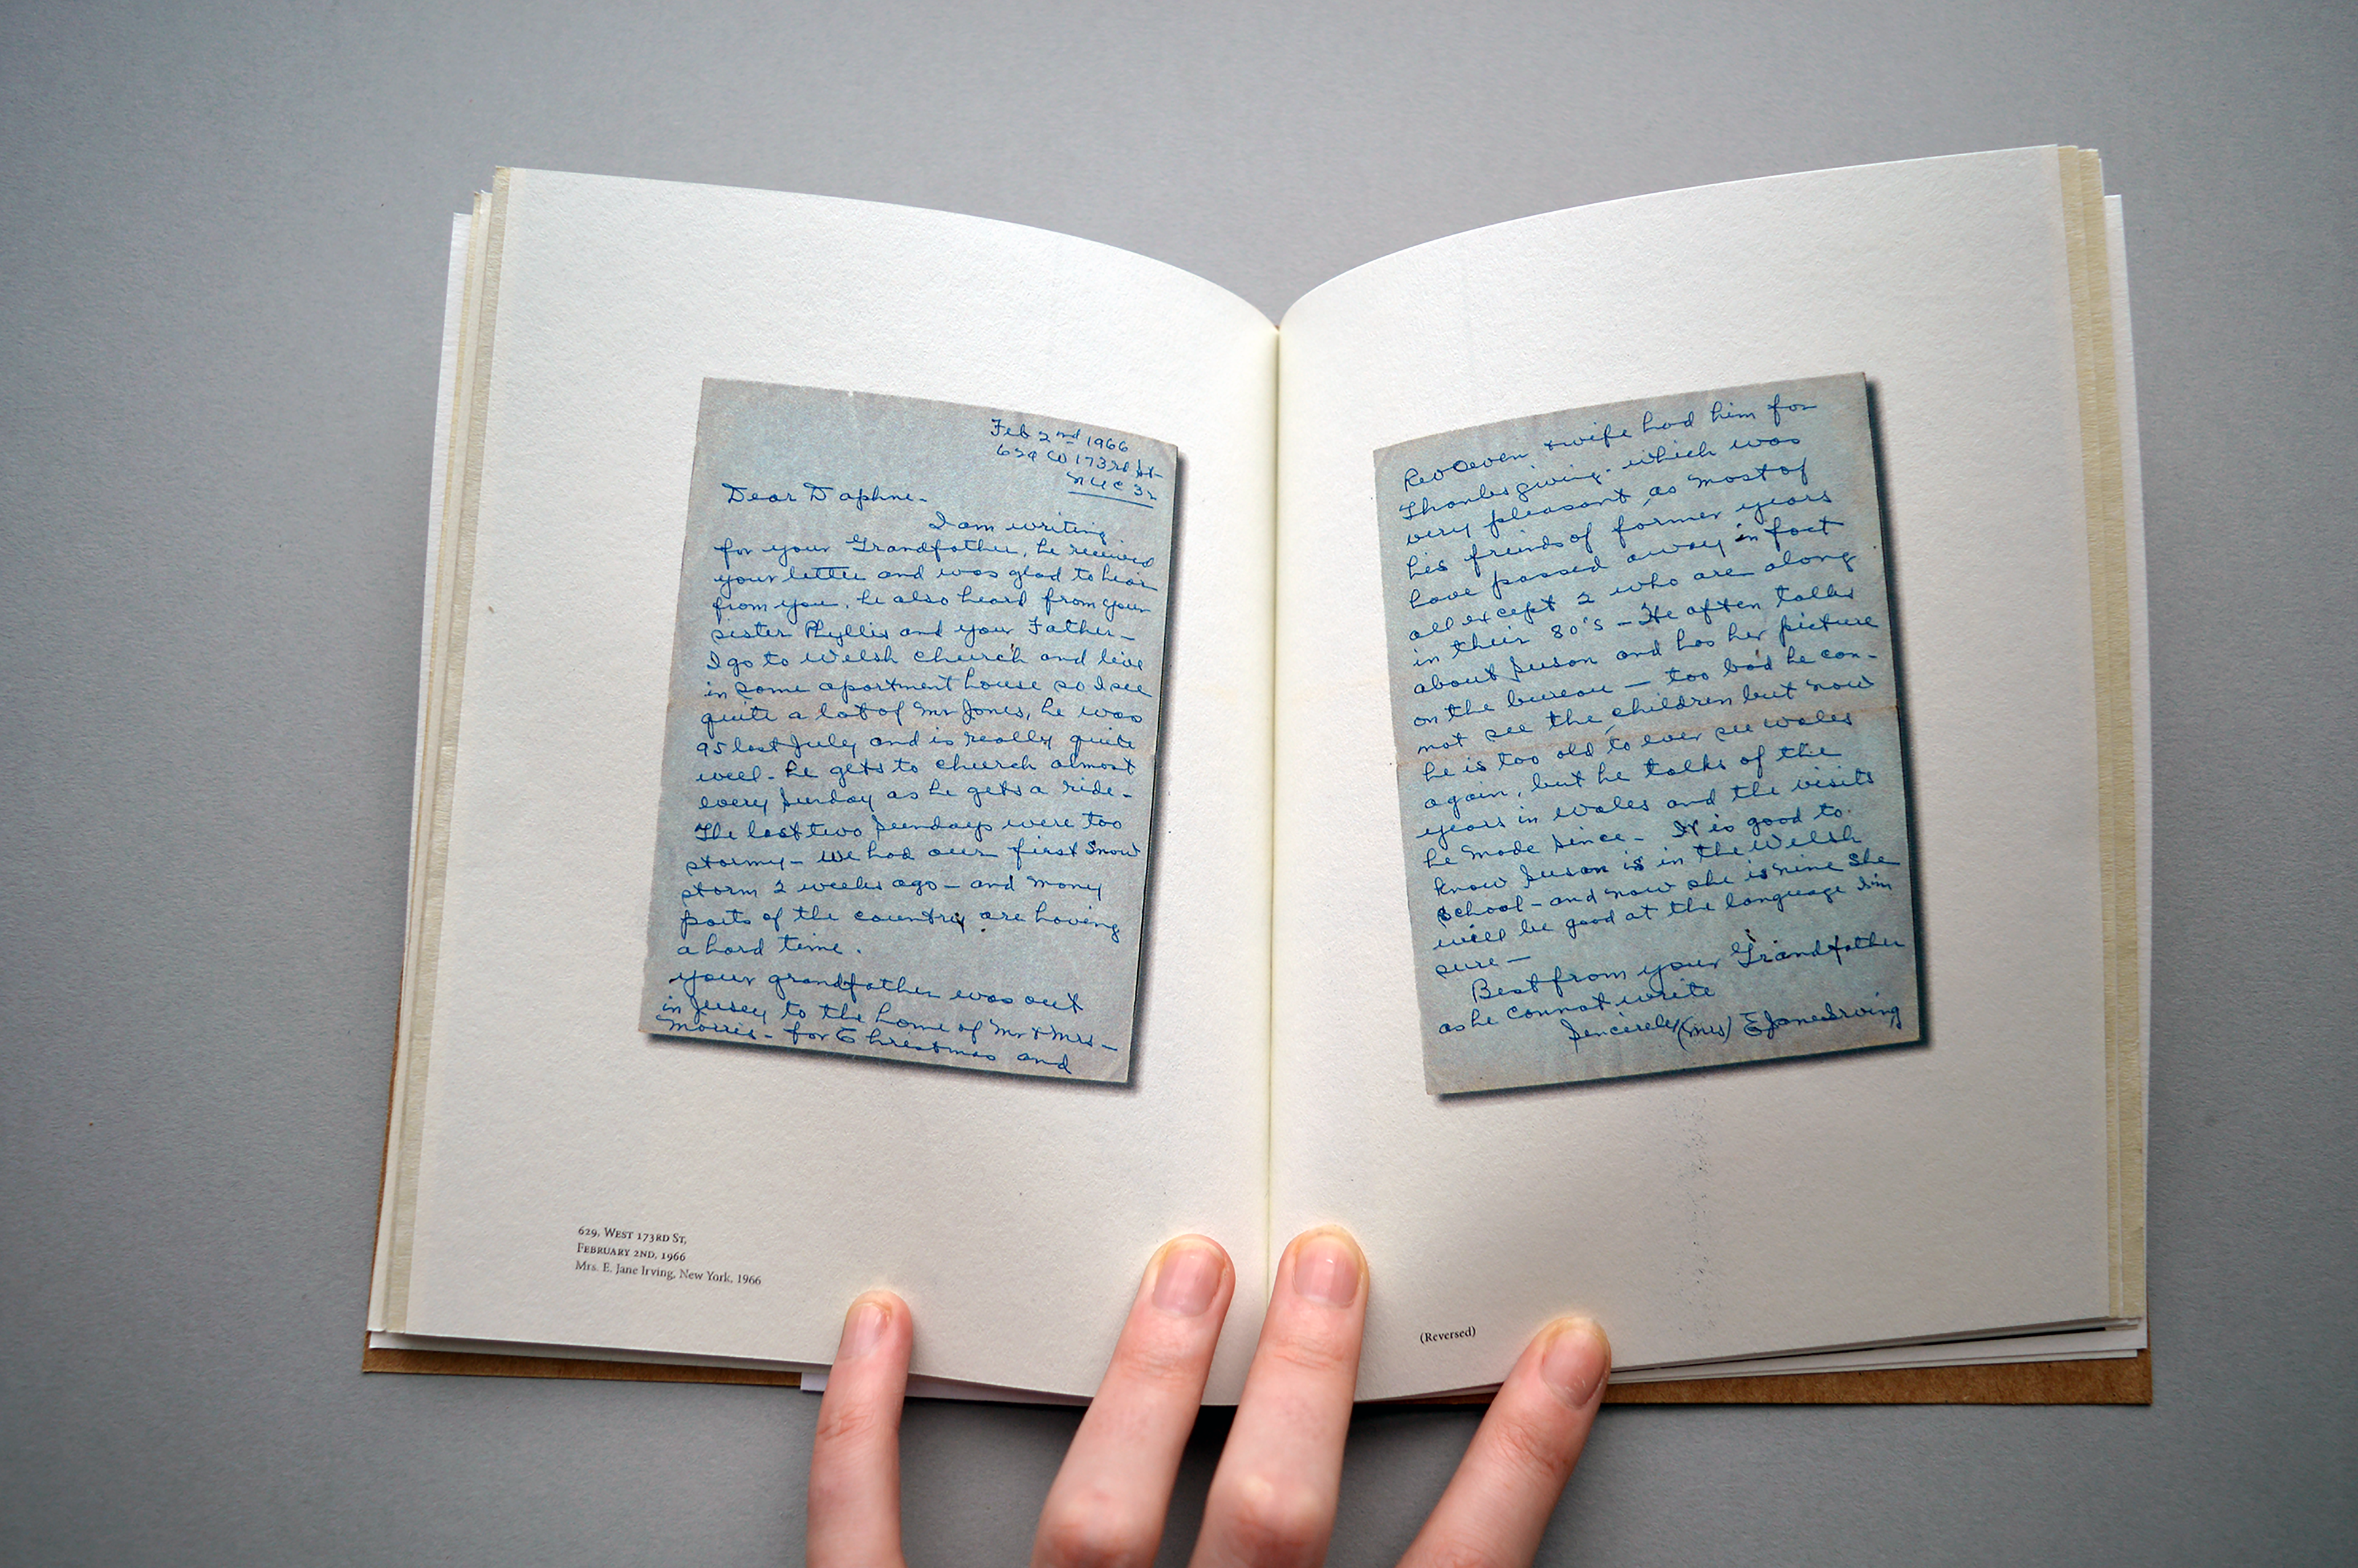 Feb 2nd 1966
629 W 173rd St-
N Y C 32
Dear Daphne-
I am writing
for your Grandfather, he received
your letter and was glad to hear
from you, he also heard from your
sister Phyllis and your Father-
I go to Welsh church and live
in same apartment house so I see
quite a lot of Mr Jones, he was
95 last July and is really quite
well- he gets to church almost
every Sunday as he gets a ride-
The last two Sundays were too
stormy- we had our first snow
storm 2 weeks ago - and many
parts of the country are having
a hard time.
your grandfather was out
in Jersey to the home of Mr + Mrs-
Morris- for Christmas and
629, West 173rd St,
February 2nd, 1966
Mrs. E. Jane Irving, New York, 1966
Rev Owen + wife had him for
Thanksgiving. which was
very pleasant, as most of
his freinds of former years
have passed away in fact
all except 2 who are along
in their 80's - He often talks
about Susan and has her picture
on the bureau - too bad he can-
not see the children but now
he is too old to ever see wales
again, but he talks of the
years in wales and the visits
he made since- It is good to
know Susan is in the Welsh
School - and now she is nine she
will be good at the language I'm
sure -
Best from your Grandfather
as he cannot write
Sincerely (Mrs) E Jane Irving
(Reversed)